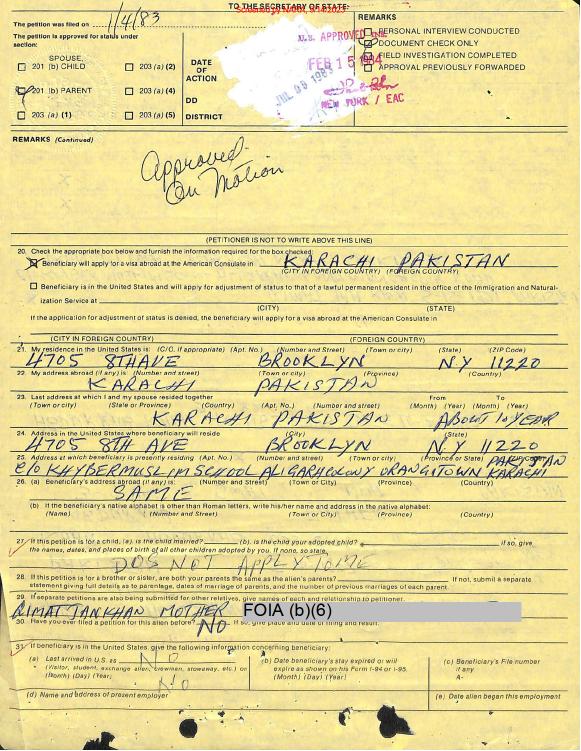 TO THE SECRETARY OF STATE:
The petition was filed on 1/4/83
The petition is approved for status under section:
SPOUSE,
201 (b) CHILD
203 (a) (2)
201 (b) PARENT
203 (a) (4)
203 (a) (1)
203 (a) (5)
DATE OF ACTION
DD
DISTRICT
U.S. APPROVED
FEB 15 1984
NEW YORK / EAC
REMARKS
PERSONAL INTERVIEW CONDUCTED
DOCUMENT CHECK ONLY
FIELD INVESTIGATION COMPLETED
APPROVAL PREVIOUSLY FORWARDED
REMARKS (Continued)
Approved
On Motion
(PETITIONER IS NOT TO WRITE ABOVE THIS LINE)
20. Check the appropriate box below and furnish the information required for the box checked:
Beneficiary will apply for a visa abroad at the American Consulate in KARACHI PAKISTAN
(CITY IN FOREIGN COUNTRY) (FOREIGN COUNTRY)
Beneficiary is in the United States and will apply for adjustment of status to that of a lawful permanent resident in the office of the Immigration and Natural-
ization Service at
(CITY) (STATE)
If the application for adjustment of status is denied, the beneficiary will apply for a visa abroad at the American Consulate in
(CITY IN FOREIGN COUNTRY) (FOREIGN COUNTRY)
21. My residence in the United States is: (C/O, if appropriate) (Apt. No.) (Number and street) (Town or city) (State) (ZIP Code)
4705 8TH AVE BROOKLYN NY 11220
22. My address abroad (if any) is: (Number and street) (Town or city) (Province) (Country)
KARACHI PAKISTAN
23. Last address at which I and my spouse resided together From To
(Town or city) (State or Province) (Country) (Apt. No.) (Number and street) (Month) (Year) (Month) (Year)
KARACHI PAKISTAN ABOUT 10 YEAR
24. Address in the United States where beneficiary will reside (City) (State)
4705 8TH AVE BROOKLYN N.Y 11220
25. Address at which beneficiary is presently residing (Apt. No.) (Number and street) (Town or city) (Province or State)
C/O KHYBER MUSLIM SCHOOL ALIGARH COLONY ORANGI TOWN KARACHI PAKISTAN
26. (a) Beneficiary's address abroad (if any) is: (Number and Street) (Town or City) (Province) (Country)
SAME
(b) If the beneficiary's native alphabet is other than Roman letters, write his/her name and address in the native alphabet:
(Name) (Number and Street) (Town or City) (Province) (Country)
27. If this petition is for a child, (a) is the child married? (b) is the child your adopted child? If so, give
the names, dates, and places of birth of all other children adopted by you. If none, so state.
DOS NOT APPLY TO ME
28. If this petition is for a brother or sister, are both your parents the same as the alien's parents? If not, submit a separate
statement giving full details as to parentage, dates of marriage of parents, and the number of previous marriages of each parent.
29. If separate petitions are also being submitted for other relatives, give names of each and relationship to petitioner.
MOTHER FOIA (b)(6)
30. Have you ever filed a petition for this alien before? NO If so, give place and date of filing and result.
31. If beneficiary is in the United States, give the following information concerning beneficiary:
(a) Last arrived in U.S. as NO
(Visitor, student, exchange alien, crewman, stowaway, etc.) on
(Month) (Day) (Year)
(b) Date beneficiary's stay expired or will
expire as shown on his Form I-94 or I-95.
(Month) (Day) (Year)
(c) Beneficiary's File number
if any
A-
(d) Name and address of present employer NO
(e) Date alien began this employment